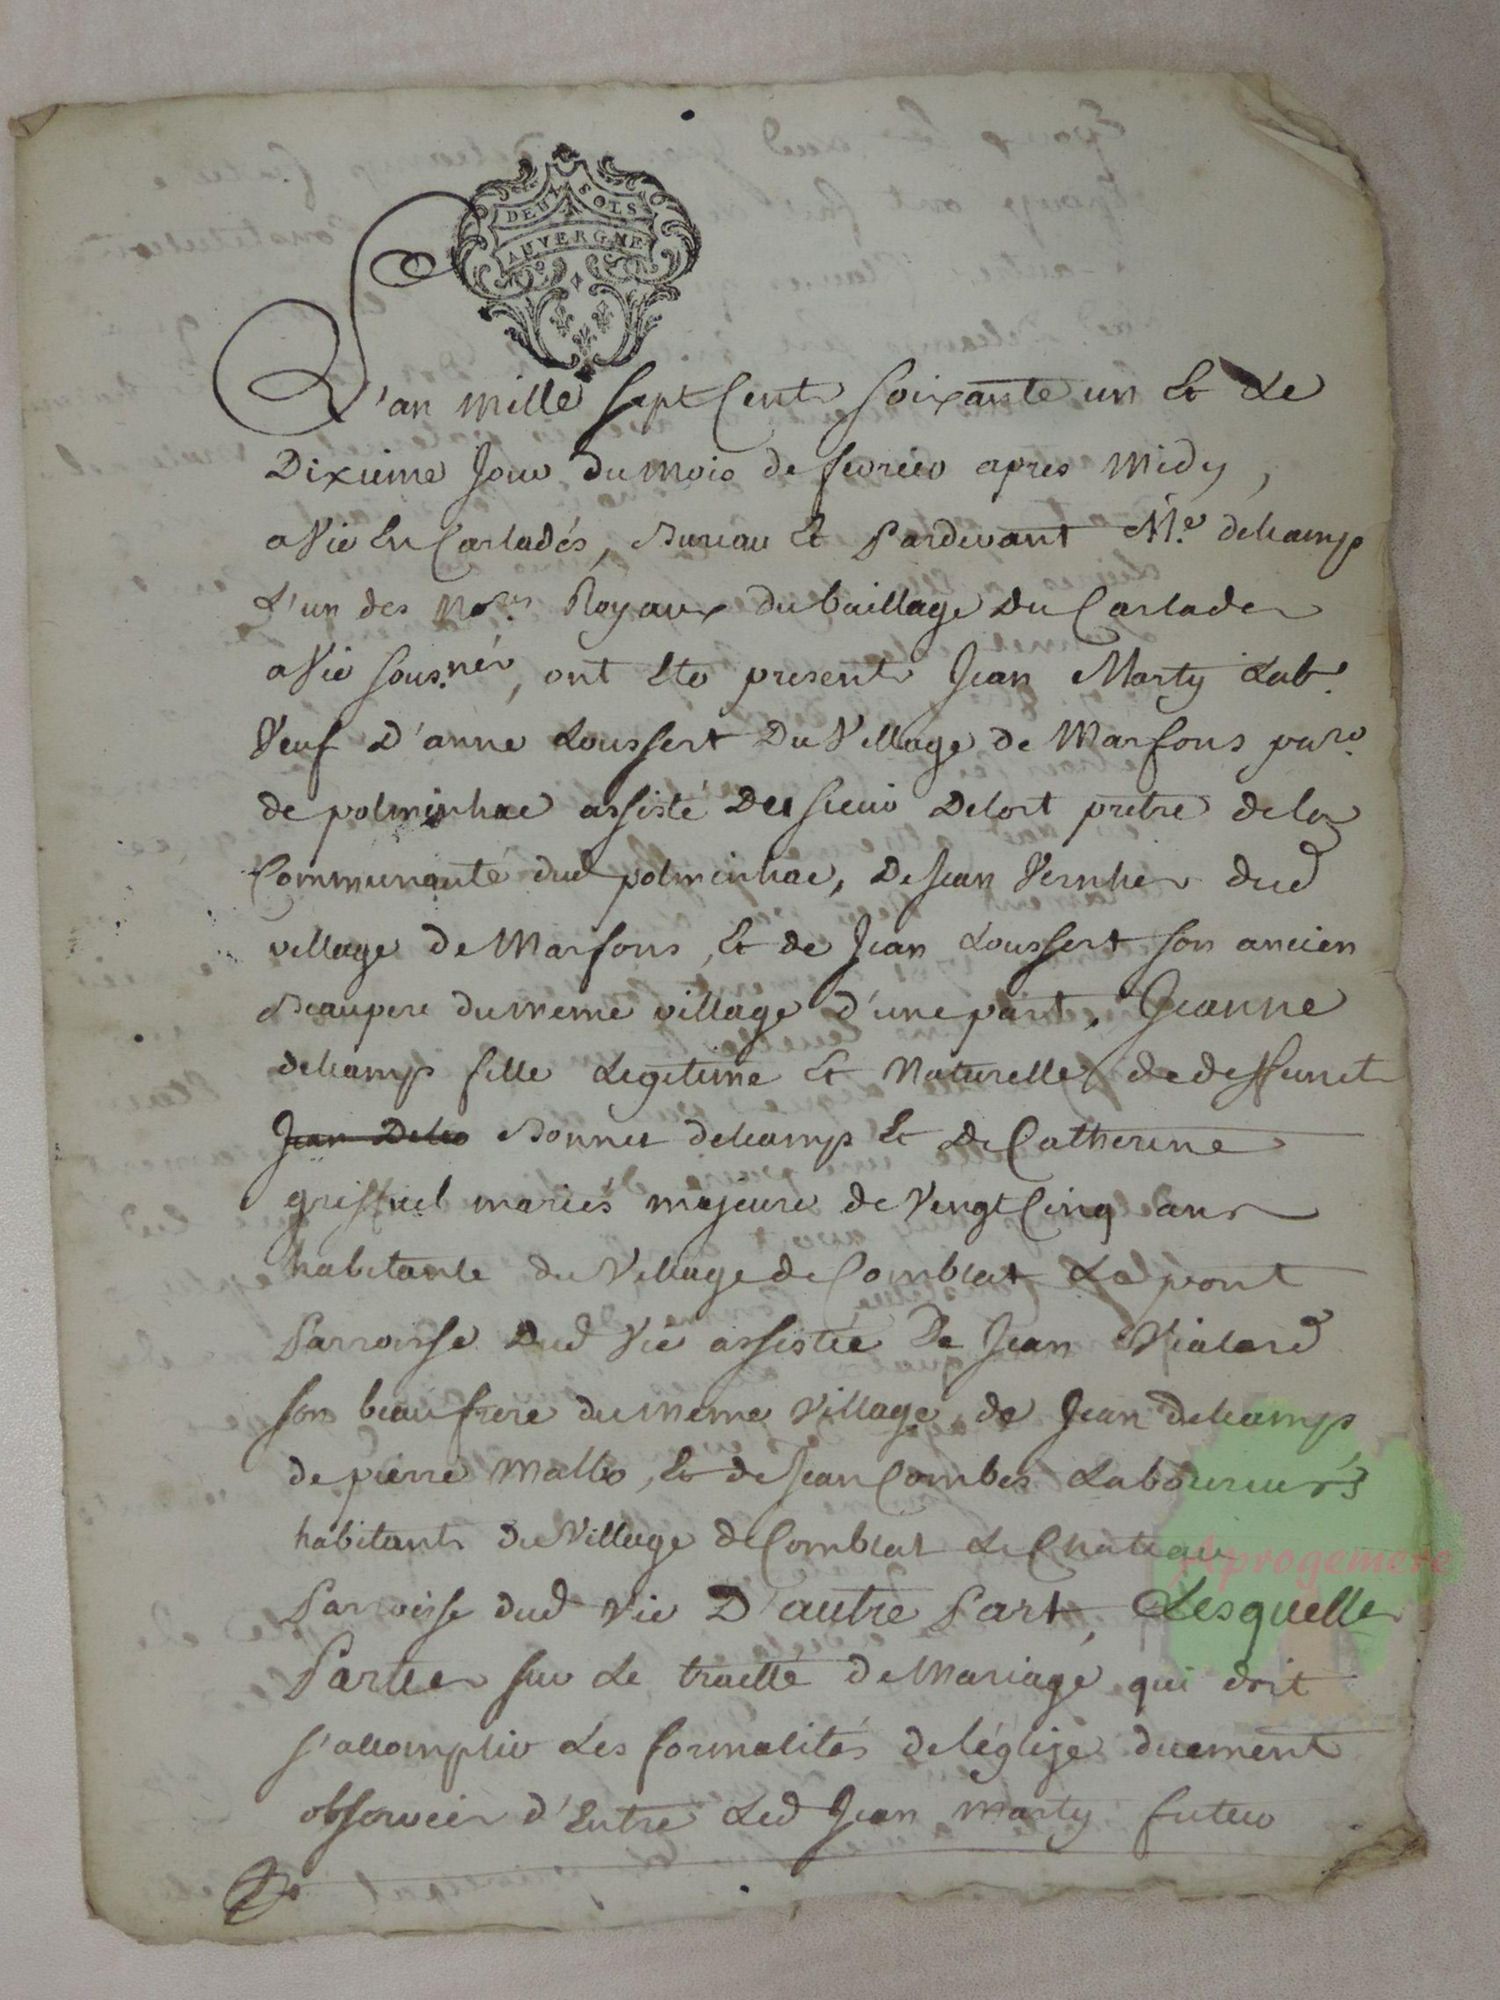 DEUX SOLS
AUVERGNE
L'an mille sept Cent soixante un Et Le
Dixieme Jour du mois de fevrier apres Midy,
a Vic En Carladés, Bureau Et Pardevant Me. delcamp
L'un des Nores. Royaux du bailliage Du Carlades
a Vic sous.nés, ont Eté presents Jean Marty Labr.
Veuf D'anne Loussert Du Village de Marfons paro.
de polminhac assisté De sieur Delort prêtre de la
Communauté dud polminhac, De Jean Vernhes dud
village de Marfons, Et de Jean Loussert son ancien
Beaupere du meme village d'une part, Jeanne
delcamp fille Legitime Et Naturelle de deffunct
Jean Delc Bonnet delcamp Et De Catherine
griffuel mariés majeure de Vingt Cinq ans
habitante du Village de Comblat Le pont
Parroisse Dud Vic assistée De Jean Vialard
son beaufrere du meme Village, de Jean delcamp
de pierre Malbo, Et de Jean Combes Laboureurs
habitants du Village de Comblat Le Chateau
Parroisse dud Vic D'autre Part, Lesquelles
Parties sur Le traitté de Mariage qui doit
s'accomplir Les formalités de l'église duement
observées d'Entre Led Jean Marty futur
Aprogemere